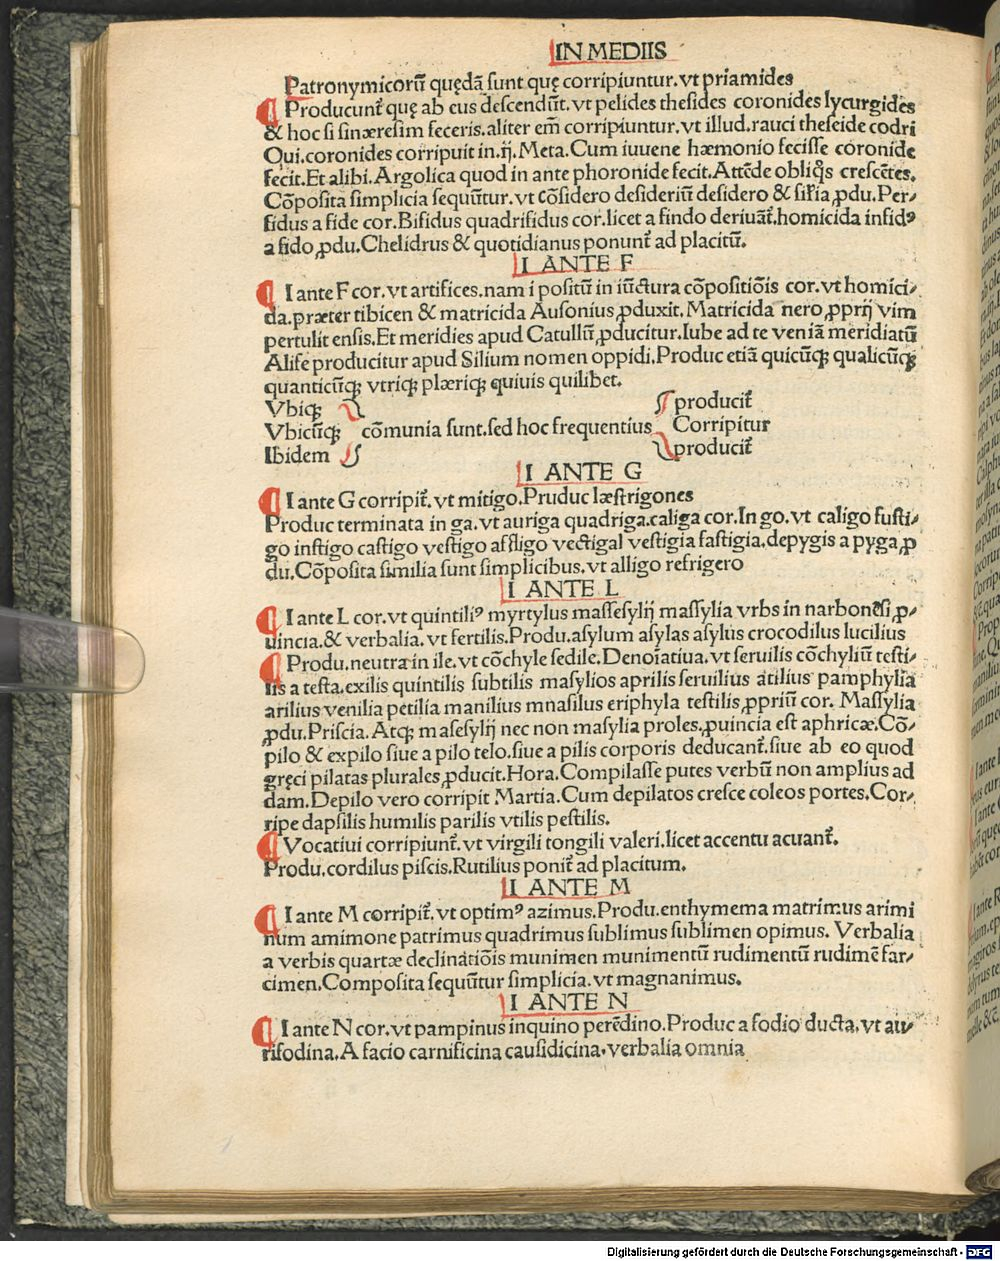 IN MEDIIS
Patronymicorū quędā sunt quę corripiuntur. vt priamides
¶ Producunt̄ quę ab eus descendūt. vt pelides thesides coronides lycurgides
& hoc si sinæresim feceris. aliter em̄ corripiuntur. vt illud. rauci theseide codri
Qui. coronides corripuit in. ij. Meta. Cum iuuene hæmonio fecisse coronide
fecit. Et alibi. Argolica quod in ante phoronide fecit. Attēde obliq̄s crescētes.
Cōposita simplicia sequūtur. vt cōsidero desideriū desidero & siria ꝓdu. Per⸗
fidus a fide cor. Bifidus quadrifidus cor. licet a findo deriuāt̄. homicida infidꝰ
a fido ꝓdu. Chelidrus & quotidianus ponunt̄ ad placitū.
I ANTE F
¶ I ante F cor. vt artifices. nam i positū in iūctura cōpositiōis cor. vt homici⸗
da. præter tibicen & matricida Ausonius ꝓduxit. Matricida nero ꝓprij vim
pertulit ensis. Et meridies apud Catullū ꝓducitur. Iube ad te veniā meridiatū
Alife producitur apud Silium nomen oppidi. Produc etiā quicūqꝫ qualicūqꝫ
quanticūqꝫ vtriqꝫ plæriqꝫ quiuis quilibet.
Vbiqꝫ producit̄
Vbicūqꝫ cōmunia sunt. sed hoc frequentius Corripitur
Ibidem producit̄
I ANTE G
¶ I ante G corripit̄. vt mitigo. Pruduc læstrigones
Produc terminata in ga. vt auriga quadriga. caliga cor. In go. vt caligo fusti⸗
go instigo castigo vestigo affligo vectigal vestigia fastigia. depygis a pyga ꝓ
du. Cōposita similia sunt simplicibus. vt alligo refrigero
I ANTE L
¶ I ante L cor. vt quintiliꝰ myrtylus massesylij massylia vrbs in narbonēsi ꝓ⸗
uincia. & verbalia. vt fertilis. Produ. asylum asylas asylus crocodilus lucilius
¶ Produ. neutra in ile. vt cōchyle sedile. Denoīatiua. vt seruilis cōchyliū testi⸗
lis a testa. exilis quintilis subtilis masylios aprilis seruilius atilius pamphylia
arilius venilia petilia manilius mnasilus eriphyla testilis ꝓpriū cor. Massylia
ꝓdu. Priscia. Atqꝫ masesylij nec non masylia proles. ꝓuincia est aphricæ. Cō⸗
pilo & expilo siue a pilo telo. siue a pilis corporis deducant̄. siue ab eo quod
gręci pilatas plurales ꝓducit. Hora. Compilasse putes verbū non amplius ad
dam. Depilo vero corripit Martia. Cum depilatos cresce coleos portes. Cor⸗
ripe dapsilis humilis parilis vtilis pestilis.
¶ Vocatiui corripiunt̄. vt virgili tongili valeri. licet accentu acuant̄.
Produ. cordilus piscis. Rutilius ponit̄ ad placitum.
I ANTE M
¶ I ante M corripit̄. vt optimꝰ azimus. Produ. enthymema matrimus arimi
num amimone patrimus quadrimus sublimus sublimen opimus. Verbalia
a verbis quartæ declinatiōis munimen munimentū rudimentū rudimē far⸗
cimen. Composita sequūtur simplicia. vt magnanimus.
I ANTE N
¶ I ante N cor. vt pampinus inquino perēdino. Produc a fodio ducta. vt au⸗
rifodina. A facio carnificina causidicina. verbalia omnia
Digitalisierung gefördert durch die Deutsche Forschungsgemeinschaft - DFG